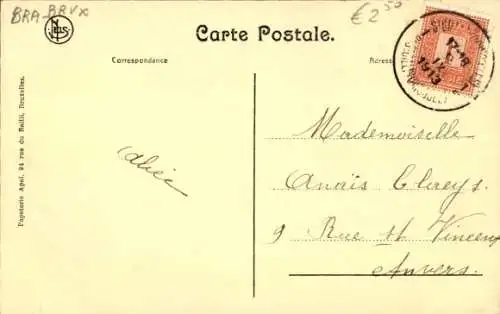 BRA-BRUX
€2⁵⁰
NELS
Carte Postale.
Correspondance
Adresse
17-18
1913
Papeterie Apel, 94 rue du Bailli, Bruxelles.
Alice
Mademoiselle
Anaïs Clereys.
9 Rue st Vincent
Anvers.